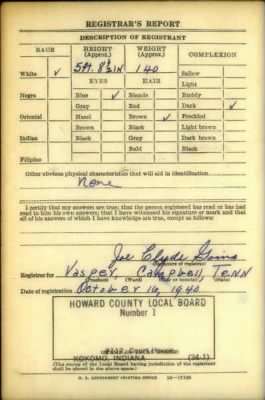 REGISTRAR'S REPORT
DESCRIPTION OF REGISTRANT
RACE HEIGHT (Approx.) WEIGHT (Approx.) COMPLEXION
White ✓ 5ft. 8½IN 140 Sallow
EYES HAIR Light
Negro Blue ✓ Blonde Ruddy
Gray Red Dark ✓
Oriental Hazel Brown ✓ Freckled
Brown Black Light brown
Indian Black Gray Dark brown
Bald Black
Filipino
Other obvious physical characteristics that will aid in identification
None
I certify that my answers are true; that the person registered has read or has had
read to him his own answers; that I have witnessed his signature or mark and that
all of his answers of which I have knowledge are true, except as follows:
Joe Clyde Goins
(Signature of registrar)
Registrar for Vasper, Campbell, Tenn
(Precinct) (Ward) (City or county) (State)
Date of registration October 16 1940
HOWARD COUNTY LOCAL BOARD
Number 1
Court House
KOKOMO, INDIANA (34-1)
(The stamp of the Local Board having jurisdiction of the registrant
shall be placed in the above space.)
U. S. GOVERNMENT PRINTING OFFICE 16-17105